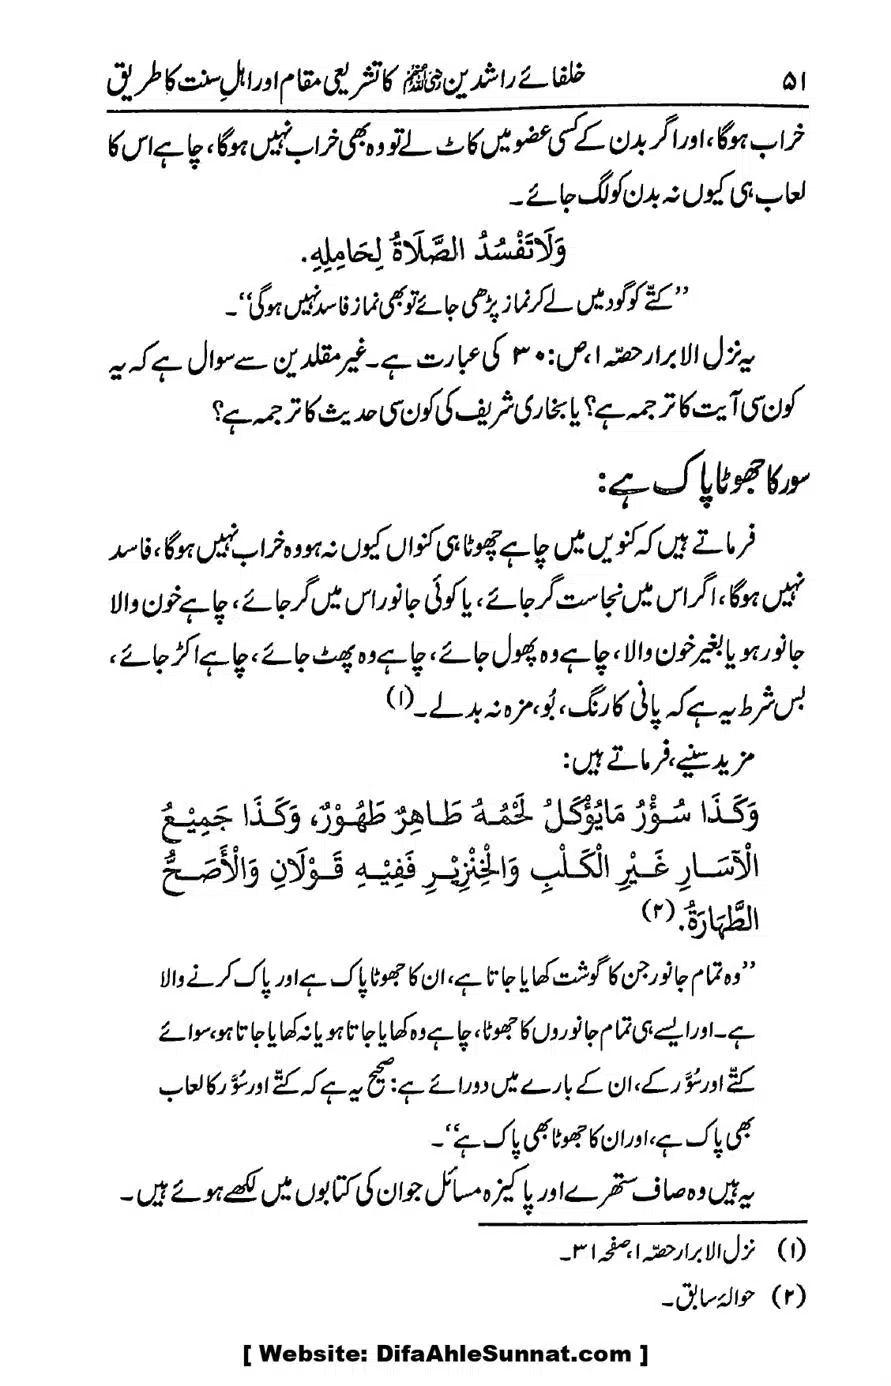 ۵۱ خلفائے راشدین رضی اللہ عنہم کا تشریعی مقام اور اہلِ سنت کا طریق
خراب ہوگا، اور اگر بدن کے کسی عضو میں کاٹ لے تو وہ بھی خراب نہیں ہوگا، چاہے اس کا
لعاب ہی کیوں نہ بدن کو لگ جائے۔
وَلَا تَفْسُدُ الصَّلَاةُ لِحَامِلِهِ.
’’کتّے کو گود میں لے کر نماز پڑھی جائے تو بھی نماز فاسد نہیں ہوگی‘‘۔
یہ نزل الابرار حصّہ ۱، ص: ۳۰ کی عبارت ہے۔ غیر مقلدین سے سوال ہے کہ یہ
کون سی آیت کا ترجمہ ہے؟ یا بخاری شریف کی کون سی حدیث کا ترجمہ ہے؟
سور کا جھوٹا پاک ہے:
فرماتے ہیں کہ کنویں میں چاہے چھوٹا ہی کنواں کیوں نہ ہو وہ خراب نہیں ہوگا، فاسد
نہیں ہوگا، اگر اس میں نجاست گر جائے، یا کوئی جانور اس میں گر جائے، چاہے خون والا
جانور ہو یا بغیر خون والا، چاہے وہ پھول جائے، چاہے وہ پھٹ جائے، چاہے اکڑ جائے،
بس شرط یہ ہے کہ پانی کا رنگ، بُو، مزہ نہ بدلے۔(۱)
مزید سنیے، فرماتے ہیں:
وَكَذَا سُؤْرُ مَا يُؤْكَلُ لَحْمُهُ طَاهِرٌ طَهُوْرٌ، وَكَذَا جَمِيْعُ
الْآسَارِ غَيْرِ الْكَلْبِ وَالْخِنْزِيْرِ فَفِيْهِ قَوْلَانِ وَالْأَصَحُّ
الطَّهَارَةُ.(۲)
’’وہ تمام جانور جن کا گوشت کھایا جاتا ہے، ان کا جھوٹا پاک ہے اور پاک کرنے والا
ہے۔ اور ایسے ہی تمام جانوروں کا جھوٹا، چاہے وہ کھایا جاتا ہو یا نہ کھایا جاتا ہو، سوائے
کتّے اور سُوَّر کے، ان کے بارے میں دو رائے ہے: صحیح یہ ہے کہ کتّے اور سُوَّر کا لعاب
بھی پاک ہے، اور ان کا جھوٹا بھی پاک ہے‘‘۔
یہ ہیں وہ صاف ستھرے اور پاکیزہ مسائل جو ان کی کتابوں میں لکھے ہوئے ہیں۔
(۱) نزل الابرار حصّہ ۱، صفحہ ۳۱۔
(۲) حوالۂ سابق۔
[ Website: DifaAhleSunnat.com ]